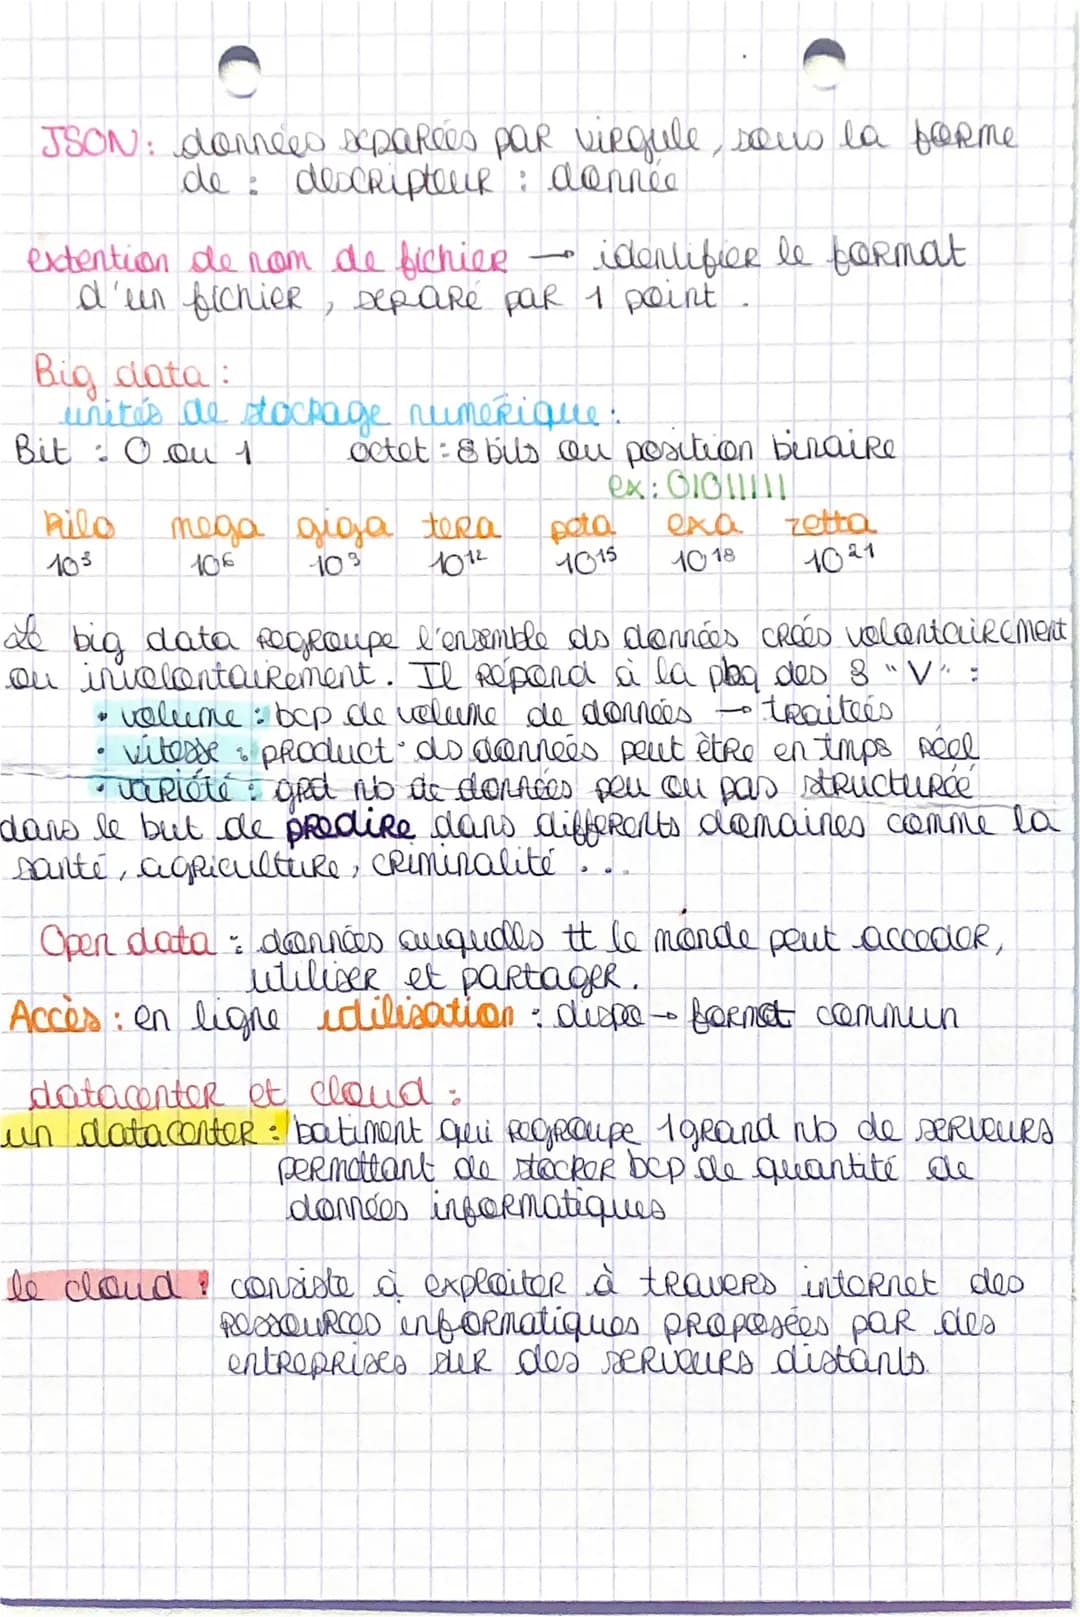 JSON: données separées par virgule, sous la forme
de : descripteur : donnée
extention de nom de fichier → identifier le format
d'un fichier, separé par 1 point.
Big data :
unités de stockage numérique :
Bit : 0 ou 1 octet : 8 bits ou position binaire
ex : 01011111
kilo mega giga tera peta exa zetta
10³ 10⁶ 10⁹ 10¹² 10¹⁵ 10¹⁸ 10²¹
Le big data regroupe l'ensemble ds données créés volontairement
ou involontairement. Il répond à la pbq des 3 "V" :
• volume : bcp de volume de données → traiteés
• vitesse : product° ds données peut être en tmps réel
• variété : grd nb de données peu ou pas structurée
dans le but de prédire dans différents domaines comme la
santé, agriculture, criminalité ...
Open data : données auquelles tt le monde peut acceder,
utiliser et partager.
Accès : en ligne utilisation : dispo → format commun
datacenter et cloud :
un datacenter : batiment qui regroupe 1 grand nb de serveurs
permettant de stocker bcp de quantité de
données informatiques
le cloud : consiste à exploiter à travers internet des
ressources informatiques proposées par des
entreprises sur des serveurs distants.